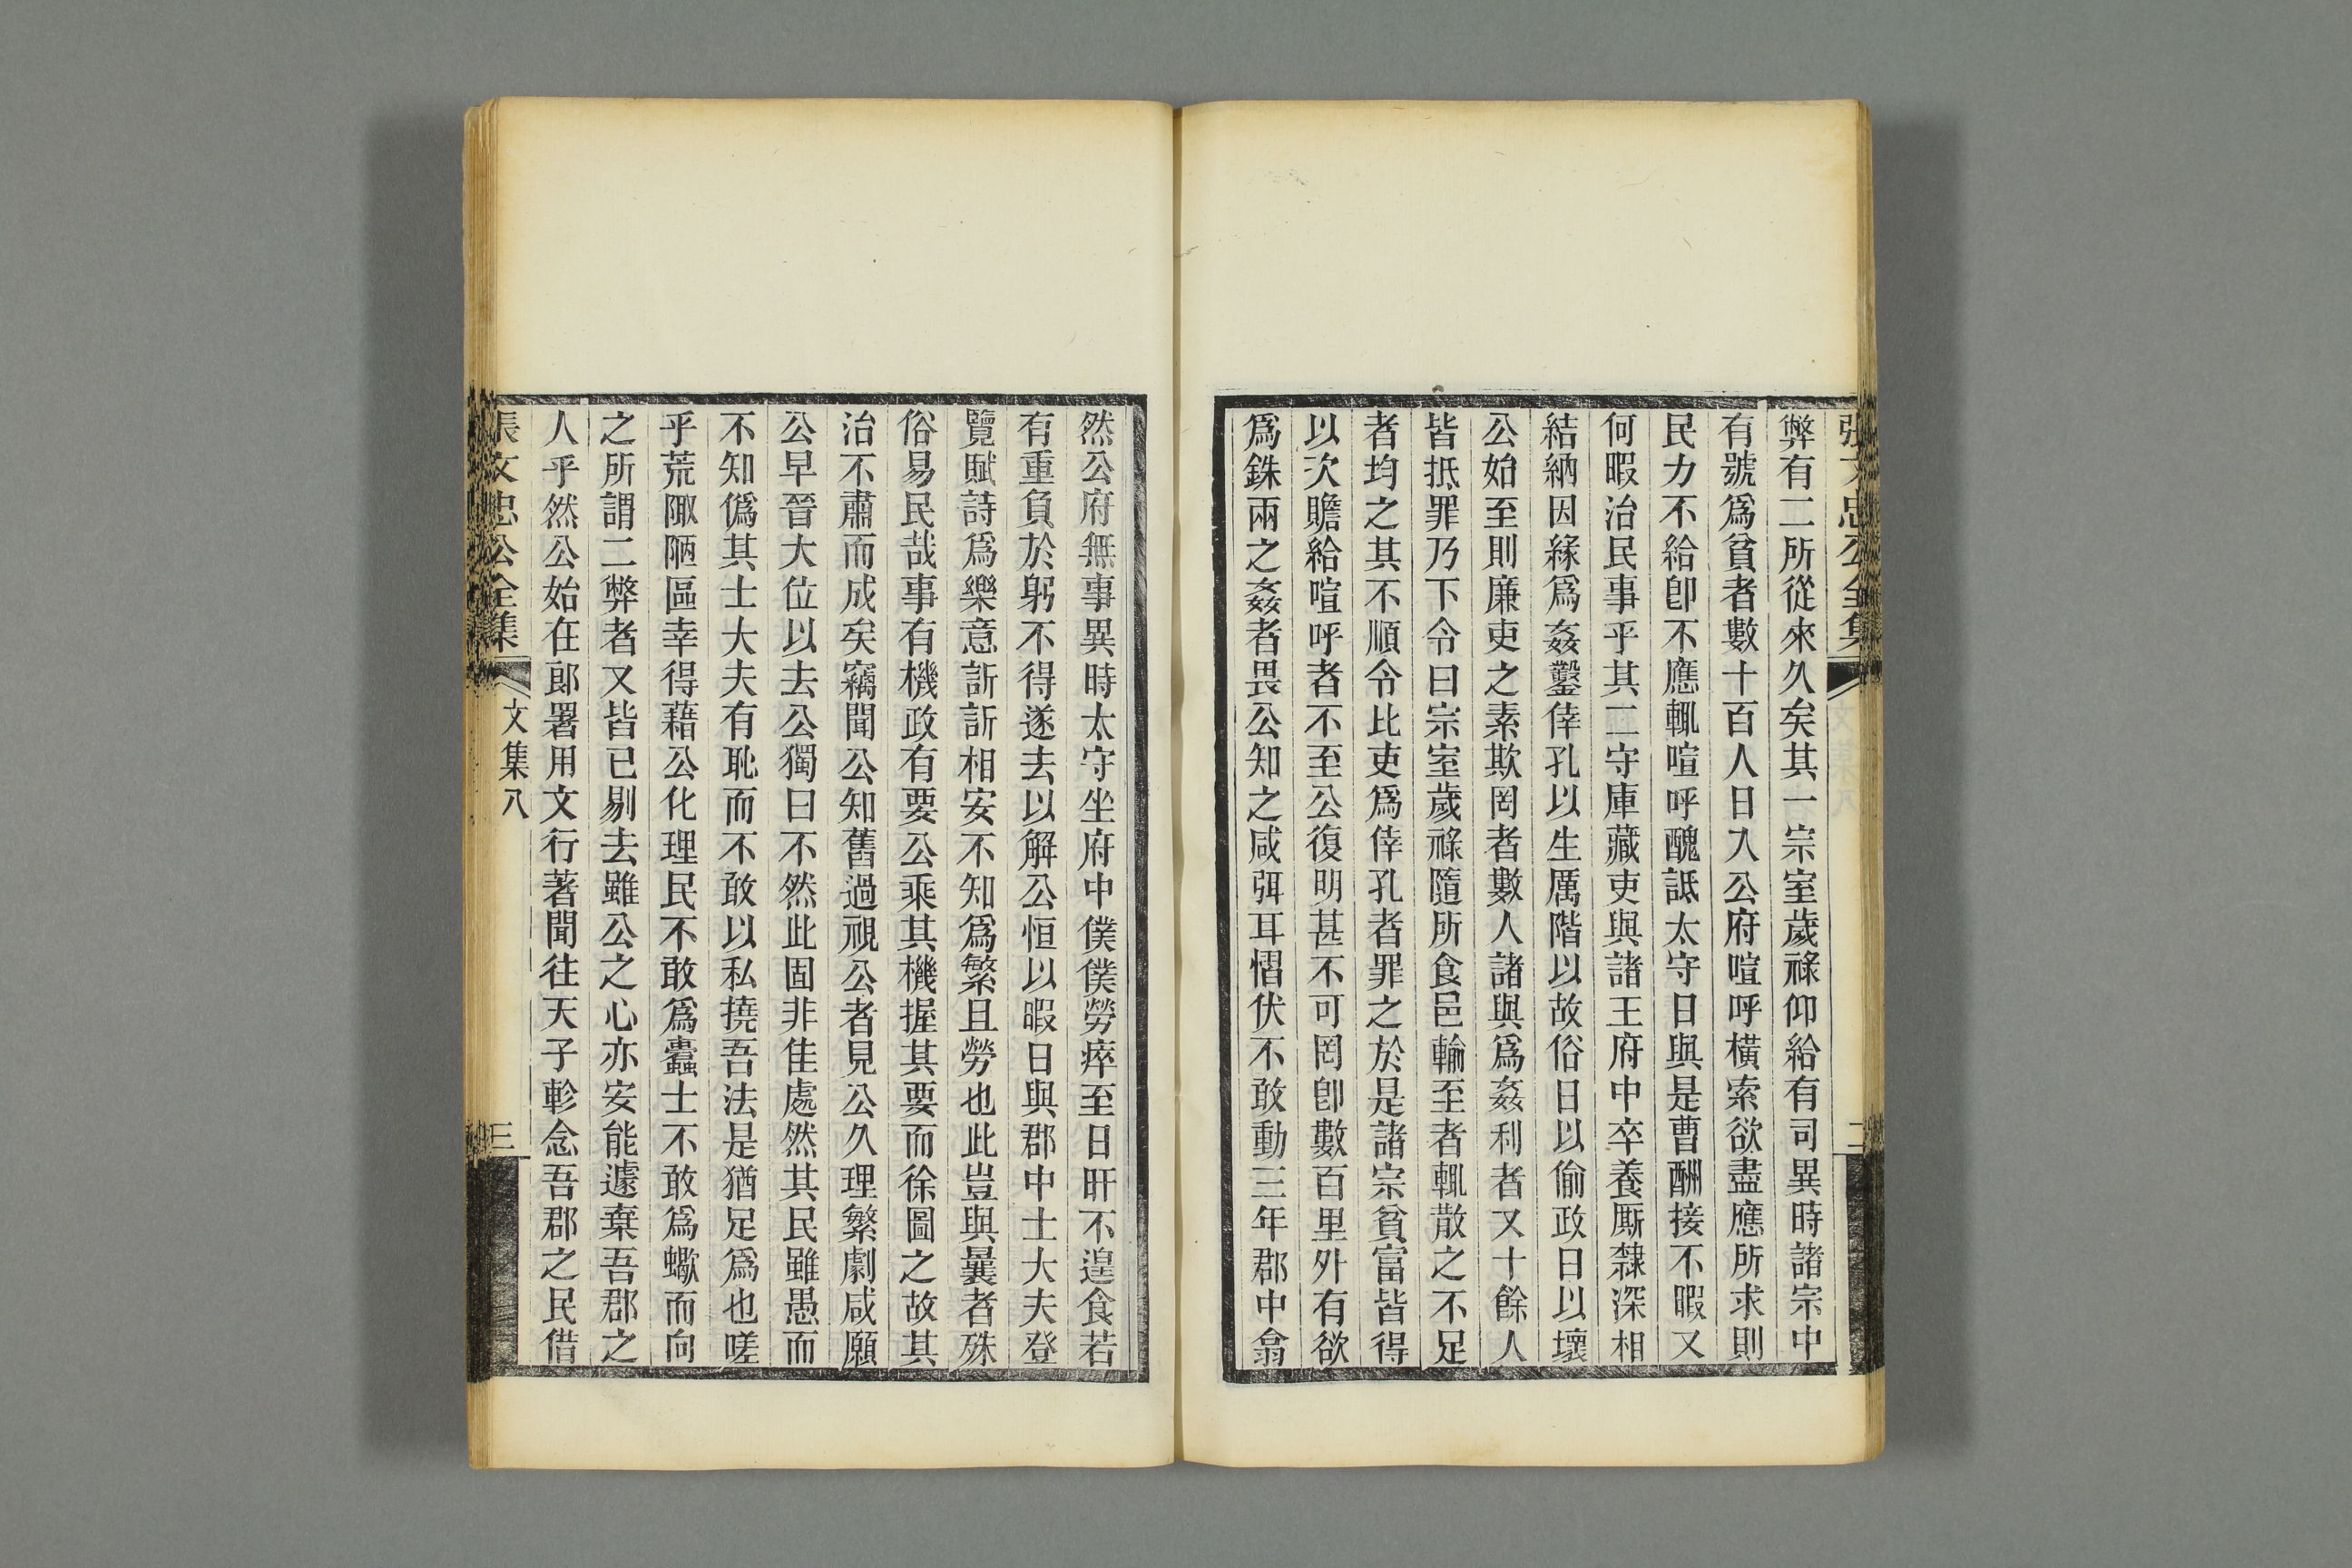 張文忠公全集
二
弊有二所從來久矣其一宗室歲祿仰給有司異時諸宗中
有號爲貧者數十百人日入公府喧呼橫索欲盡應所求則
民力不給卽不應輒喧呼醜詆太守日與是曹酬接不暇又
何暇治民事乎其二守庫藏吏與諸王府中卒養厮隸深相
結納因緣爲姦鑿倖孔以生厲階以故俗日以偷政日以壞
公始至則廉吏之素欺罔者數人諸與爲姦利者又十餘人
皆抵罪乃下令曰宗室歲祿隨所食邑輸至者輒散之不足
者均之其不順令比吏爲倖孔者罪之於是諸宗貧富皆得
以次贍給喧呼者不至公復明甚不可罔卽數百里外有欲
爲銖兩之姦者畏公知之咸弭耳慴伏不敢動三年郡中翕
然公府無事異時太守坐府中僕僕勞瘁至日旰不遑食若
有重負於躬不得遂去以解公恒以暇日與郡中士大夫登
覽賦詩爲樂意訢訢相安不知爲繁且勞也此豈與曩者殊
俗易民哉事有機政有要公乘其機握其要而徐圖之故其
治不肅而成矣竊聞公知舊過覗公者見公久理繁劇咸願
公早晉大位以去公獨曰不然此固非佳處然其民雖愚而
不知僞其士大夫有恥而不敢以私撓吾法是猶足爲也嗟
乎荒陬陋區幸得藉公化理民不敢爲蠹士不敢爲蠍而向
之所謂二弊者又皆已剔去雖公之心亦安能遽棄吾郡之
人乎然公始在郎署用文行著聞往天子軫念吾郡之民借
張文忠公全集
文集八
三